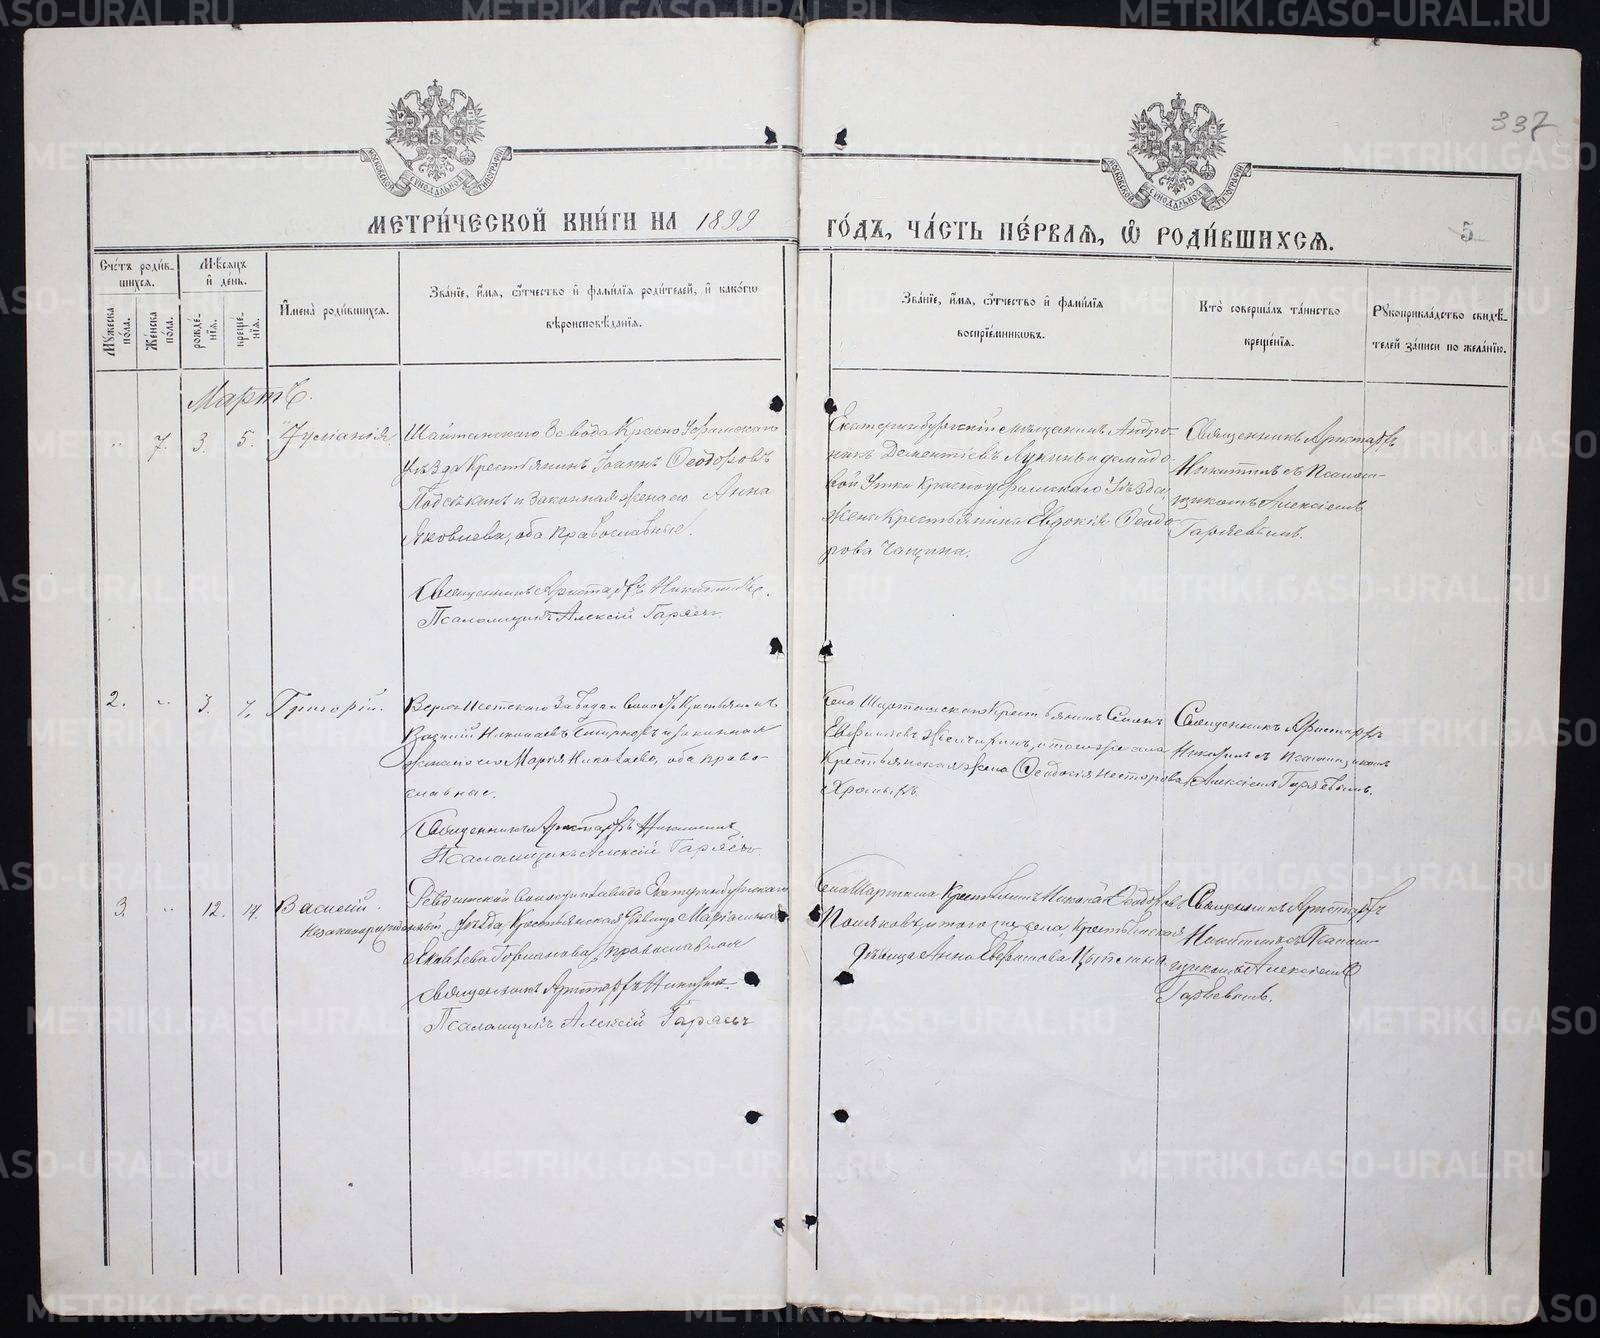 337
МОСКОВСКОЙ СѴНОДАЛЬНОЙ ТИПОГРАФІИ
МОСКОВСКОЙ СѴНОДАЛЬНОЙ ТИПОГРАФІИ
МЕТРИ́ЧЕСКОЙ КНИ́ГИ НА 1899 ГО́ДЪ, ЧА́СТЬ ПЕ́РВАѦ, Ѽ РОДИ́ВШИХСѦ.
5
Сче́тъ роди́в-
шихсѧ.
Мꙋ́жеска по́ла.
Же́нска по́ла.
Мѣ́сѧцъ и҆ де́нь.
рожде-
нїѧ.
креще-
нїѧ.
И҆мена̀ роди́вшихсѧ.
Зва́нїе, и҆́мѧ, ѻ҆́тчество и҆ фамі́лїѧ роди́телей, и҆ како́гѡ
вѣроисповѣ́данїѧ.
Зва́нїе, и҆́мѧ, ѻ҆́тчество и҆ фамі́лїѧ
воспрїе́мникѡвъ.
Кто̀ соверша́лъ та́инство
креще́нїѧ.
Рꙋкоприкла́дство свидѣ́-
телей за́писи по жела́нїю.
Мартъ.
„ 7. 3. 5.
Шайтанскаго Завода Красноуфимскаго
Уѣзда Крестьянинъ Іоаннъ Ѳеодоровъ
и законная жена его Анна
Яковлева, оба православные.
Священникъ Аристархъ Никитинъ.
Псаломщикъ Алексій Гаряевъ
Екатеринбургскій мѣщанинъ Андро-
никъ Дементіевъ Лукинъ и демидо-
вой Утки Красноуфимскаго Уѣзда,
жена Крестьянина Евдокія Ѳеодо-
рова Чащина.
Священникъ Аристархъ
Никитинъ съ Псалом-
щикомъ Алексіемъ
Гаряевымъ.
2. „ 3. 7. Григорій.
Верхъ Исетскаго Завода Крестьянинъ
Василій Николаевъ Смирновъ и законная
жена его Марія Николаева, оба право-
славные.
Священникъ Аристархъ Никитинъ
Псаломщикъ Алексій Гаряевъ.
Села Шарташскаго Крестьянинъ Семенъ
и того же села
Крестьянская жена Ѳеодосія Несторова
Священникъ Аристархъ
Никитинъ съ псаломщикомъ
Алексіемъ Гаряевымъ.
3. „ 12. 14. Василій
Незаконнорожденный
Ревдинской волости и завода Екатеринбургскаго
Уѣзда Крестьянская дѣвица
Яковлева православная
Священникъ Аристархъ Никитинъ
Псаломщикъ Алексій Гаряевъ
Села Шарташа Крестьянинъ Николай Ѳеодоровъ
Поляковъ, и того же села Крестьянская
дѣвица Анна Цыпина.
Священникъ Аристархъ
Никитинъ съ Псалом-
щикомъ Алексіемъ
Гаряевымъ.
METRIKI.GASO-URAL.RU